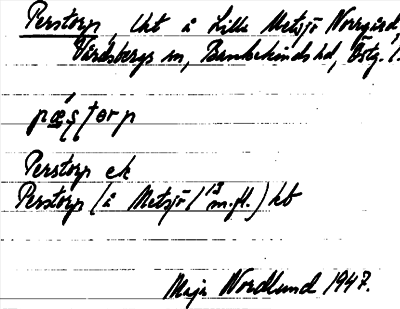 Perstorp, lht å Lilla Metsjö Norrgård,
Vårdsbergs sn, Bankekinds hd, Östg. l.
pæ̨ʂʈorp
Perstorp ek
Perstorp (å Metsjö 1 13 m.fl.) hb
Maja Nordlund 1947.